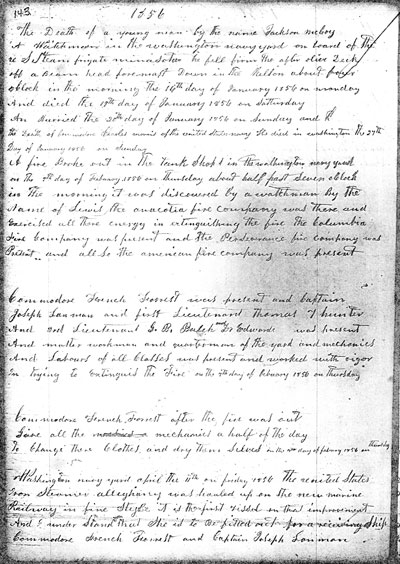 143
1856
The Death of a young man by the name Jackson
A Watchman in the washington navy yard on board of the
U S Steam frigate minnesota he fell from the after orlop Deck
off a beam head foremost Down in the Kelson about four
oclock in the morning the 14th day of January 1856 on monday
And died the 19th day of January 1856 on Saturday
An Burried the 20th day of January 1856 on Sunday and
the Death of Commodore Charles morris of the united States navy He died in washington the 27th
Day of January 1856 on Sunday
A fire Broke out in the Tank Shop in the washington navy yard
on the 7th day of February 1856 on Thursday about half past Seven oclock
in the morning it was discovered by a watchman By the
name of Lewis the anacotia fire Company was there and
Exercised all there energy in extinguilhing the fire the Columbia
Fire Company was present and the Perseverance fire company was
Present .. and all so the american fire company was present
Commodore French Forrest was present and Captain
Joseph Lanman and first Lieutenant Thomas T hunter
And 2nd Lieutenant G. B. Balch and Dr Edwards was present
And master workman and quarterman of the yard and mechanics
And Labours of all Classes was present and worked with vigor
In trying to extinguish the Fire on the 7th day of February 1856 on Thursday
Commodore French Forrest after the fire was out
Gave all the mechanics a half of the day
To Change there Clothes and dry them Selves on the 7th day of febury 1856 on thursday
Washington navy yard april the 11th on friday 1856 The united States
Iron Steamer alleghany was hauled up on the new marine
Railway in fine Style it is the first vessel on this improvement
And I under Stand that She is to be fitted out for a receiving Ship
Commodore French Forrest and Captain Joseph Lanman